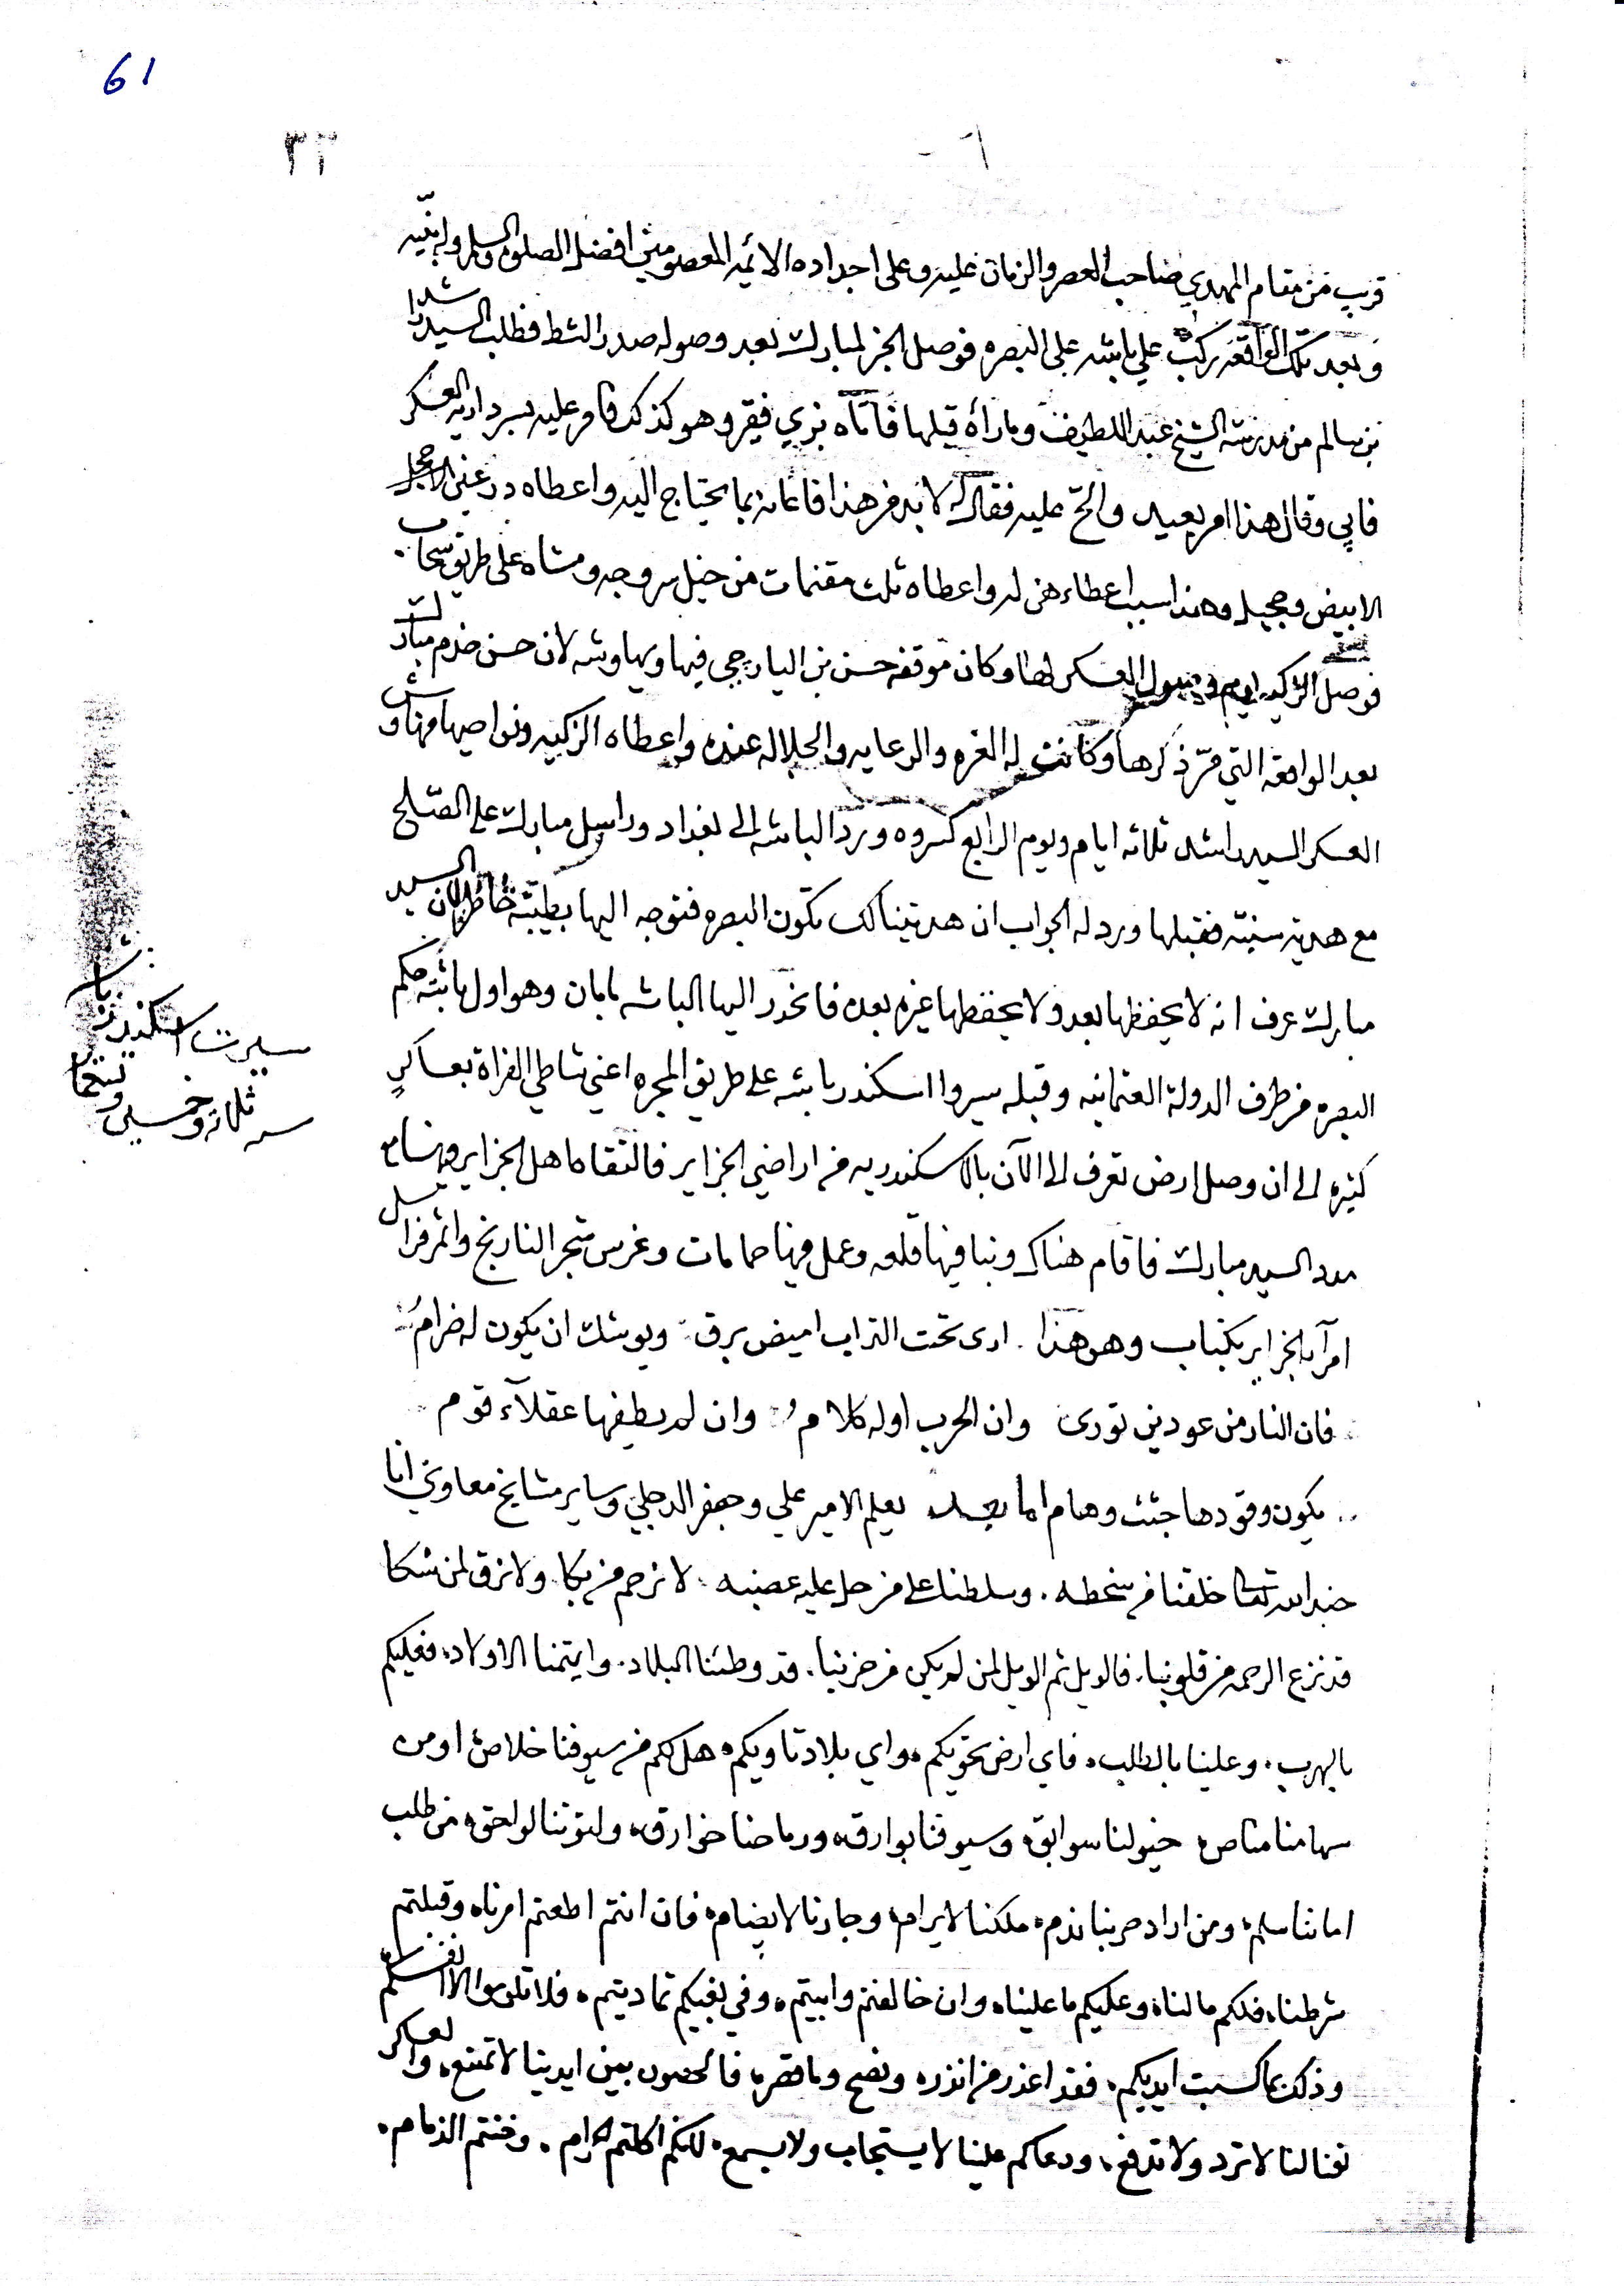 61
٣٢
٦٠
قريب من مقام المهدي صاحب العصر والزمان عليه وعلى اجداده الائمه المعصومين افضل الصلوة والسلم
وبعد تلك الواقعه ركب علي باشه على البصره فوصل الخبر لمبارك بعد وصوله صدر الشط فطلب السيد راشد
بن سالم من مدرسة الشيخ عبد اللطيف وما رأه قبلها فاتاه بزي فقير وهو كذلك فامر عليه بسردارية العسكر
فابى وقال هذا امر بعيد والح عليه فقال له لا بد من هذا فاعانه بما يحتاج اليه واعطاه درعين
الابيض وحجيل وهذا سبب اعطاءهن له واعطاه ثلث مقنمات من خيل سروجه ومشاه على طريق سحاب
فوصل الزكيه يوم وصول العسكر لها وكان موقفه حسن بن اليارجي فيها ويهاوشه لان حسن خدم مبارك
بعد الواقعه التي مر ذكرها وكانت له العزه والرعايه والجلاله عنده واعطاه الزكيه ونواصيها فهناوش
العسكر السيد راشد ثلاثه ايام ويوم الرابع كسروه ورد الباشه الى بغداد وراسل مبارك على الصلح
مع هدية سنيّه فقبلها ورد له الجواب ان هديتنا لك تكون البصره فتوجه اليها بطيبة خاطر لان السيد
مبارك عرف انه لا يحفظها بعد ولا يحفظها غيره بعده فانحدر اليها الباشه بامان وهو اول باشه حكم
البصره من طرف الدولة العثمانيه وقبله سيروا اسكندر باشه على طريق المجره اعني شاطي الفراة بعساكر
كثيره الى ان وصل ارض تعرف الى الآن بالاسكندريه من اراضي الجزاير فالتقاها اهل الجزاير وبهنسام
مدد السيد مبارك فاقام هناك وبنا فيها قلعه وعمل فيها حمامات وغرس شجر النارنج واثمر فراسل
امرآء الجزاير بكتاب وهو هذا . ارى تحت التراب اميض برق ويوشك ان يكون له ضرام
فان النار من عودين تورى وان الحرب اوله كلام وان لم يطفها عقلآء قوم
يكون وقودها جثث وهام اما بعد يعلم الامير علي وجعفر الدجلي وساير مشايخ معاوي انا
جند الله تعالى خلقنا من سخطه . وسلطنا على من حل عليه غضبه . لا نرحم من بكا . ولا نرق لمن شكا
قد نزع الرحمه من قلوبنا . فالويل ثم الويل لمن لم يكن من حزبنا . قد وطئنا البلاد . وايتمنا الاولاد . فعليكم
بالهرب . وعلينا بالطلب . فاي ارض تحويكم . واي بلاد تاويكم . هل لكم من سيوفنا خلاص او من
سهامنا مناص . خيولنا سوابق . وسيوفنا بوارق . ورماحنا خوارق . وليوثنا لواحق . من طلب
اماننا سلم . ومن اراد حربنا ندم . ملكنا لا يرام . وجارنا لا يضام . فان انتم اطعتم امرنا . وقبلتم
شرطنا . فلكم ما لنا . وعليكم ما علينا . وان خالفتم وابيتم . وفي بغيكم تماديتم . فلا تلوموا الا انفسكم
وذلك بما كسبت ايديكم . فقد اعذر من انذر . ونصح وما قصر . فالحصون بين ايدينا لا تمنع . والعساكر
لقتالنا لا ترد ولا تدفع . ودعاكم علينا لا يستجاب ولا يسمع . لانكم اكلتم الحرام . وخنتم الذمام .
سيرت اسكندر باشا
سنه ثلاثه وخمسين وتسعما